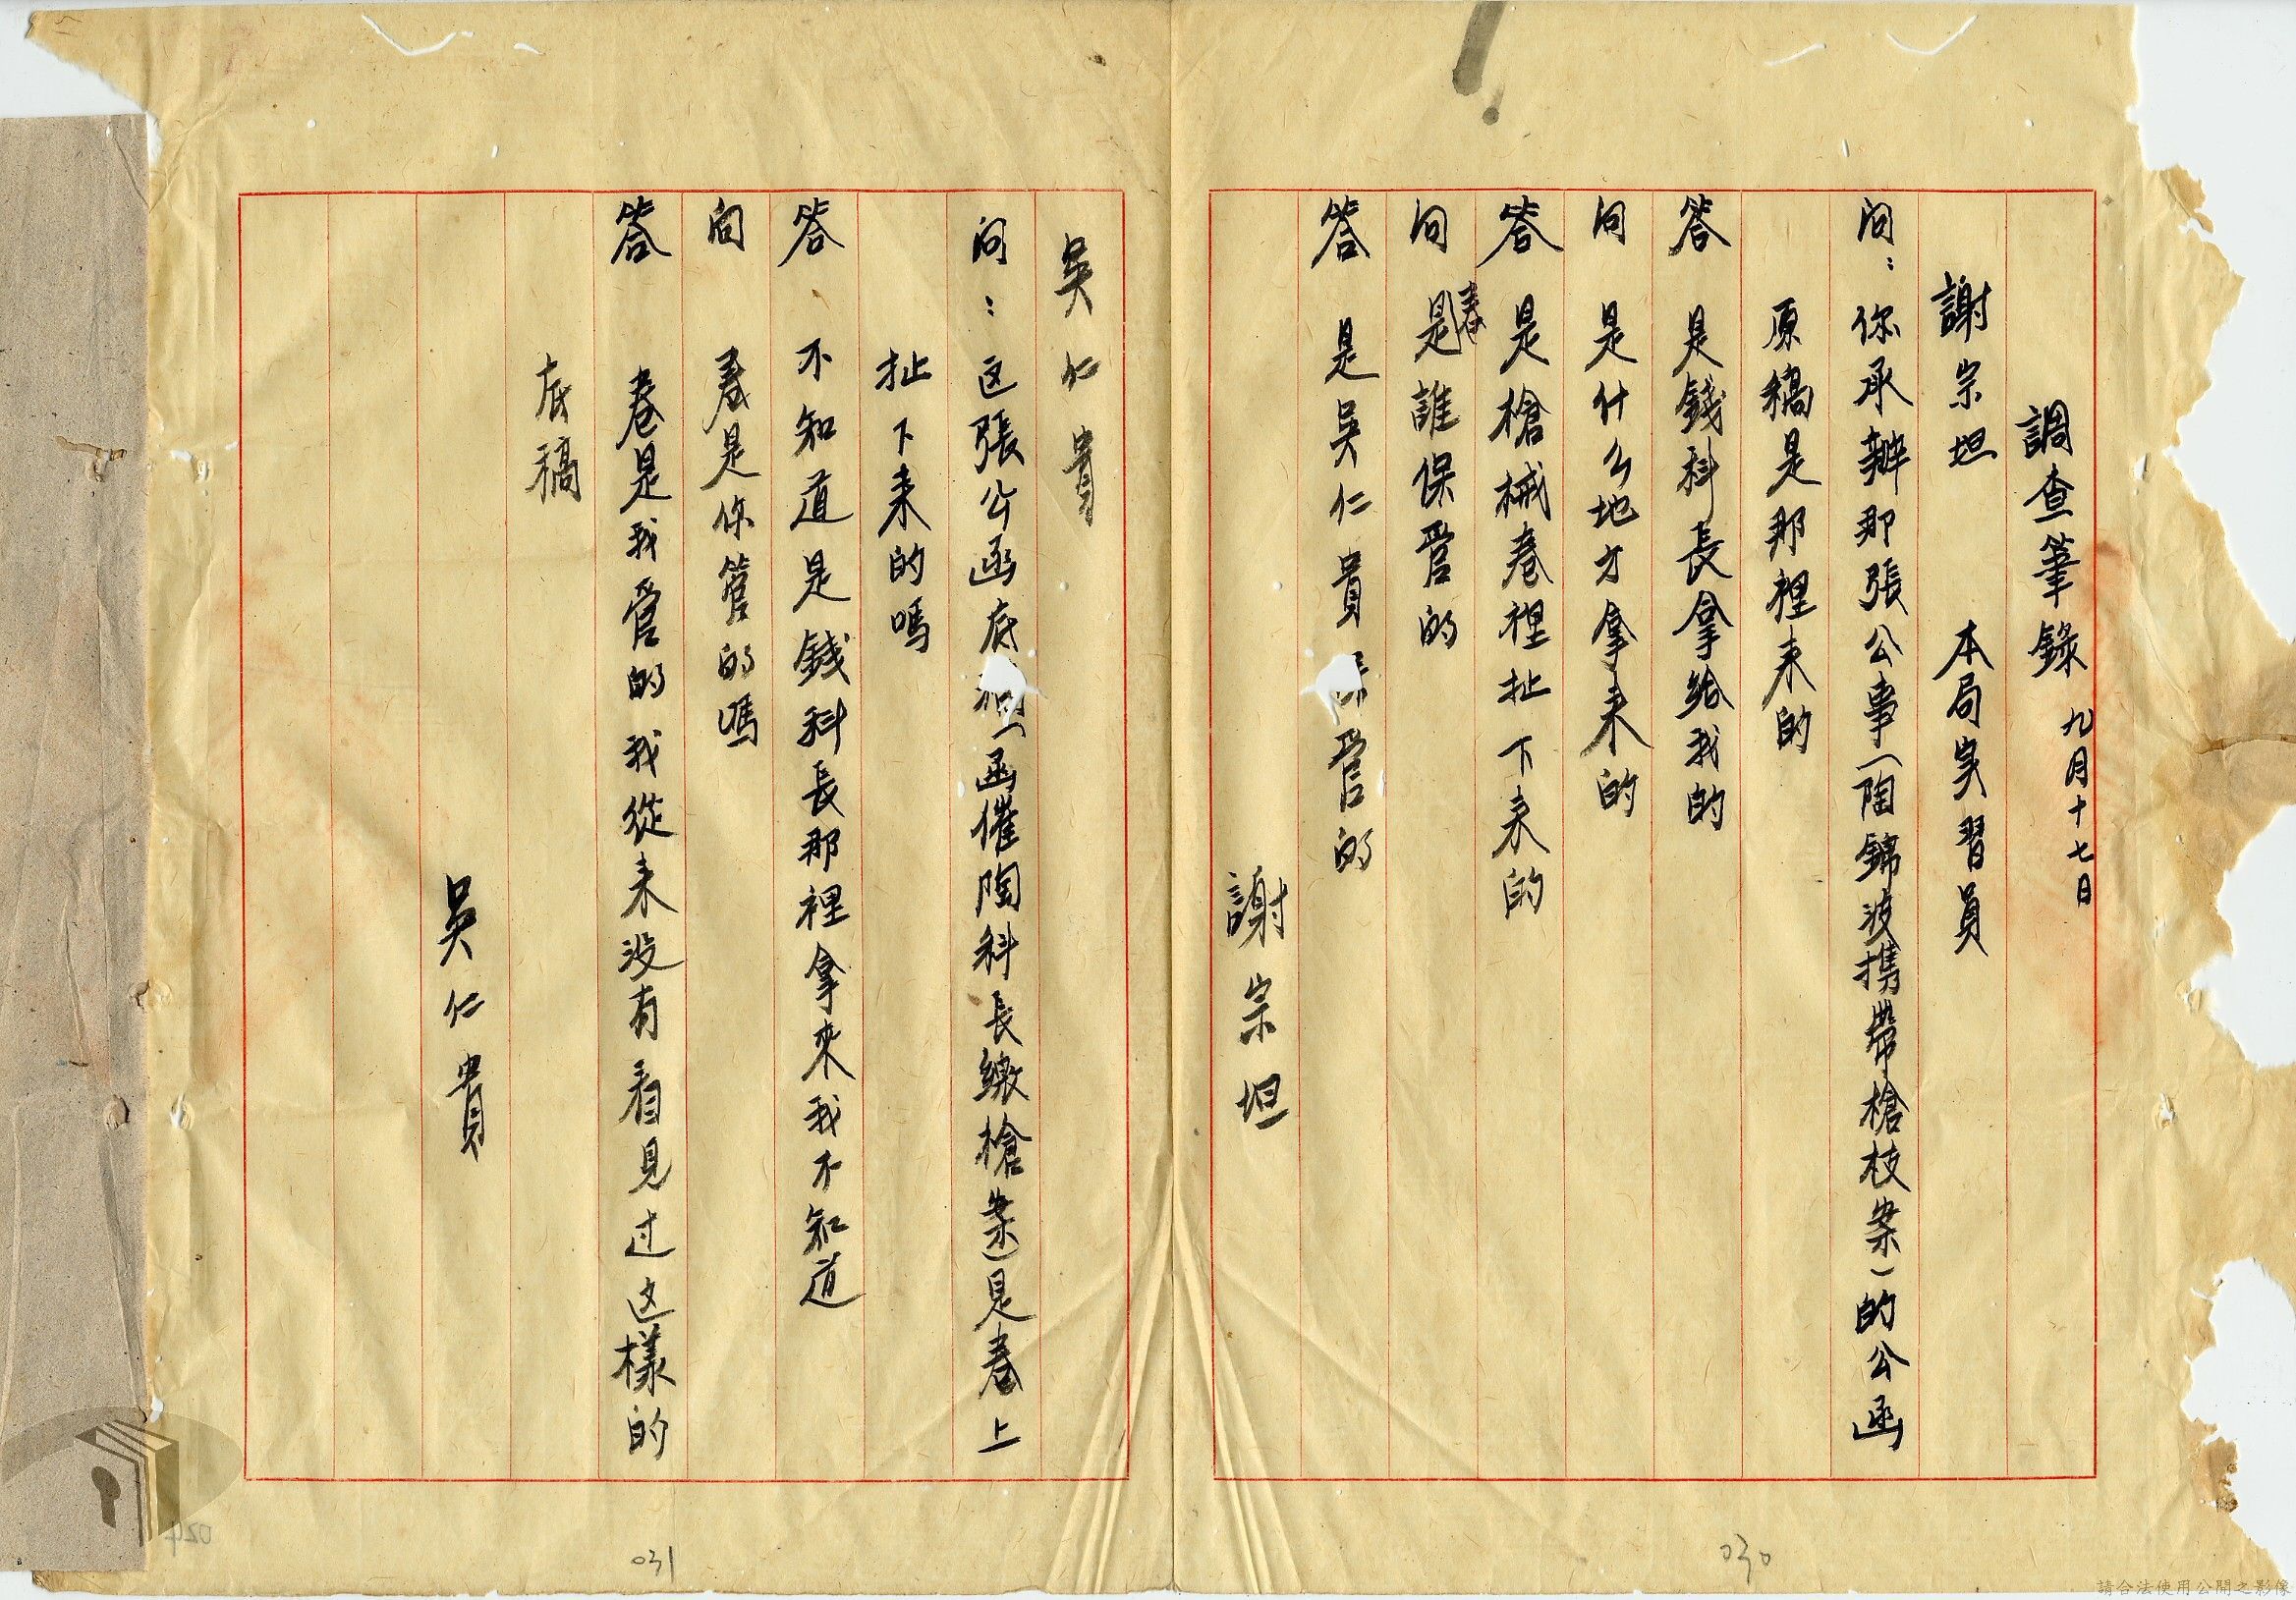 調查筆錄 九月十七日
謝宗坦 本局实習員
问：你承辦那張公事（陶錦波携帶槍枝案）的公函
原稿是那裡来的
答 是錢科長拿给我的
问 是什么地方拿来的
答 是槍械卷裡扯下来的
问 卷是誰保管的
答 是吴仁貴保管的
謝宗坦
吴仁貴
问：这張公函底稿（函催陶科長繳槍案）是卷上
扯下来的嗎
答 不知道是錢科長那裡拿來我不知道
问 卷是你管的嗎
答 卷是我管的我從来没有看見过这樣的
底稿
吴仁貴
030
031
024
請合法使用公開之影像